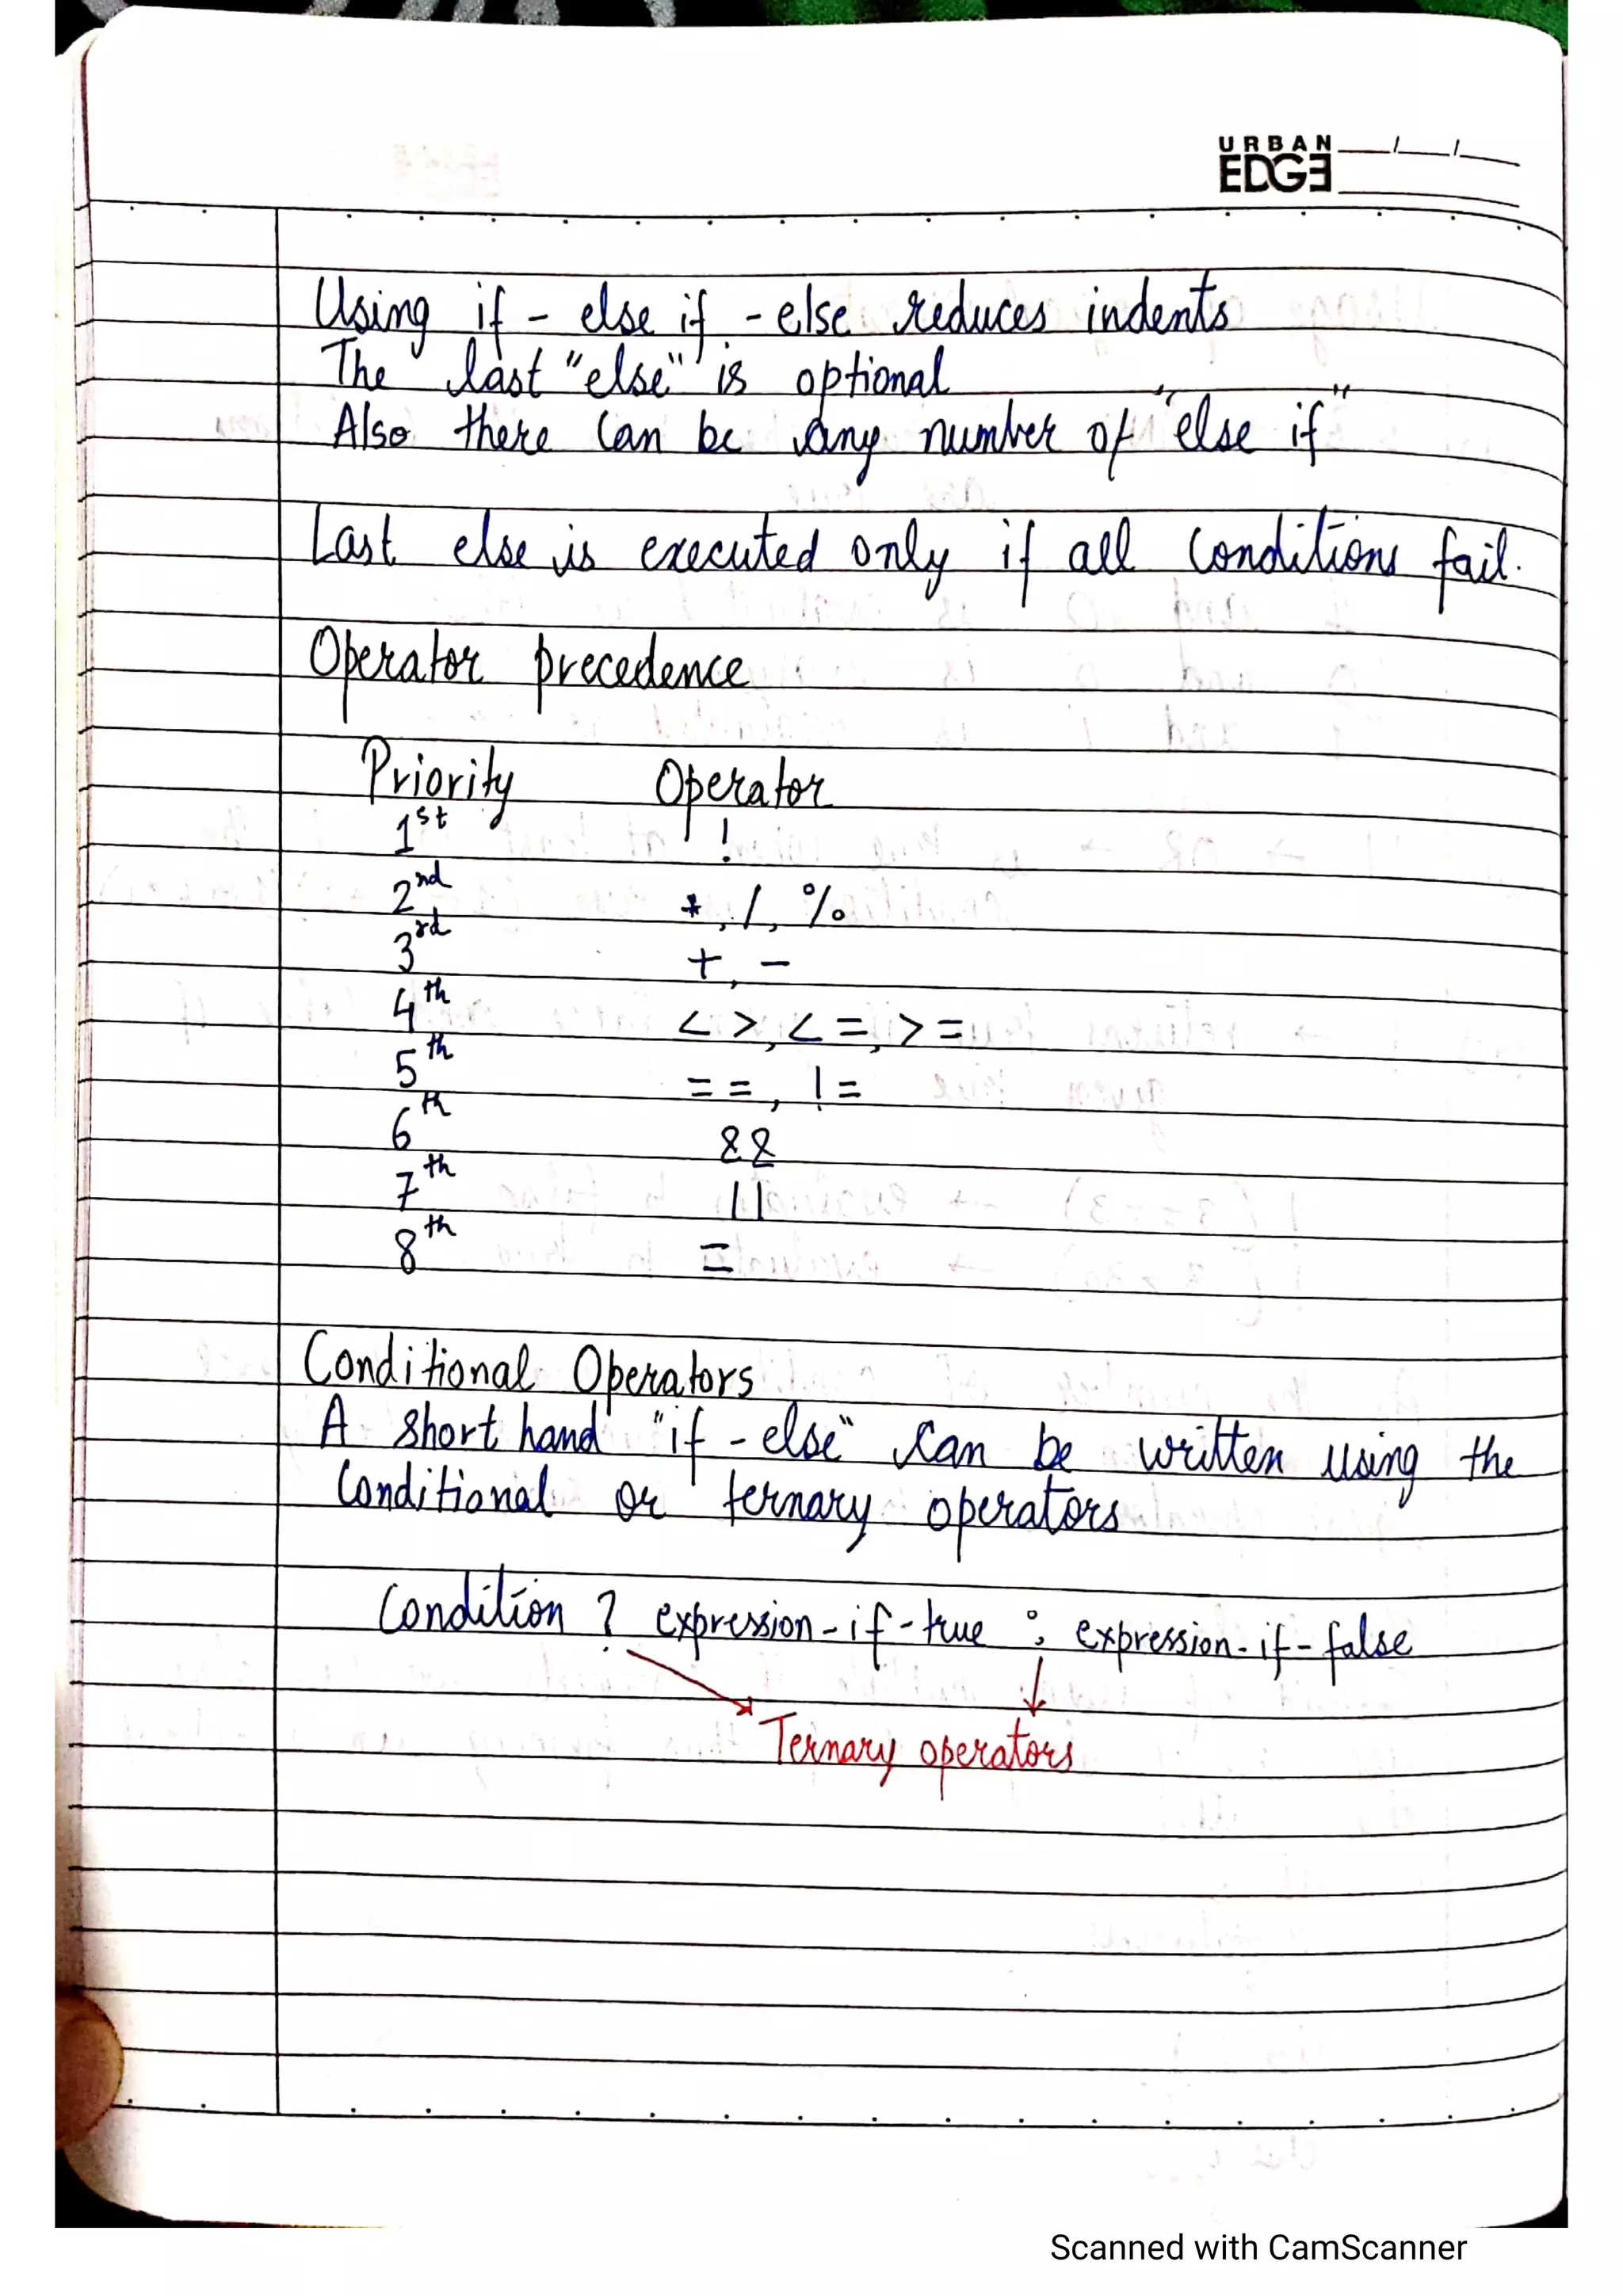 URBAN
EDGE
Using if - else if - else reduces indents
The last "else" is optional
Also there can be any number of "else if"
Last else is executed only if all conditions fail.
Operator precedence
Priority Operator
1st !
2nd *, /, %
3rd +, -
4th < >, < =, > =
5th = =, ! =
6th &&
7th ||
8th =
Conditional Operators
A short hand "if - else" can be written using the
Conditional or ternary operators
Condition ? expression-if-true : expression-if-false
Ternary operators
Scanned with CamScanner